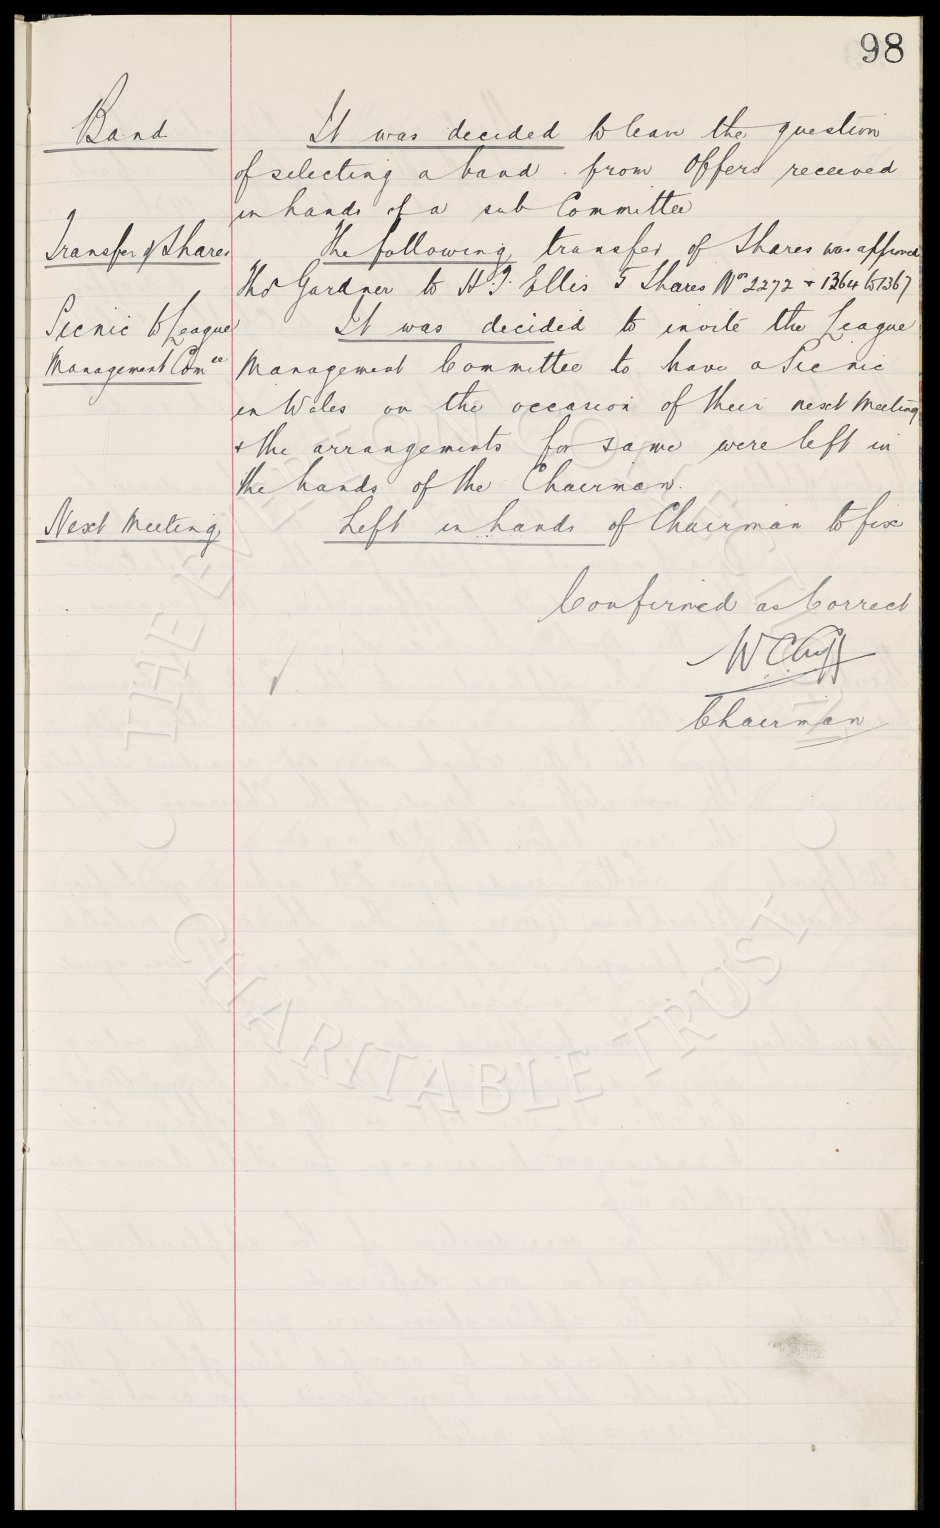 98
Band
It was decided to leave the question
of selecting a band from Offers received
in hands of a sub Committee
Transfer of Shares
The following transfer of Shares was approved
Thos Gardner to H. J. Ellis 5 Shares Nos 2272 + 1364 to 1367
Picnic to League
Management Comee
It was decided to invite the League
Management Committee to have a Picnic
in Wales on the occasion of their next Meeting
+ the arrangements for same were left in
the hands of the Chairman.
Next Meeting
Left in hands of Chairman to fix
Confirmed as Correct
W. C. Cuff
Chairman
THE EVERTON COLLECTION
CHARITABLE TRUST